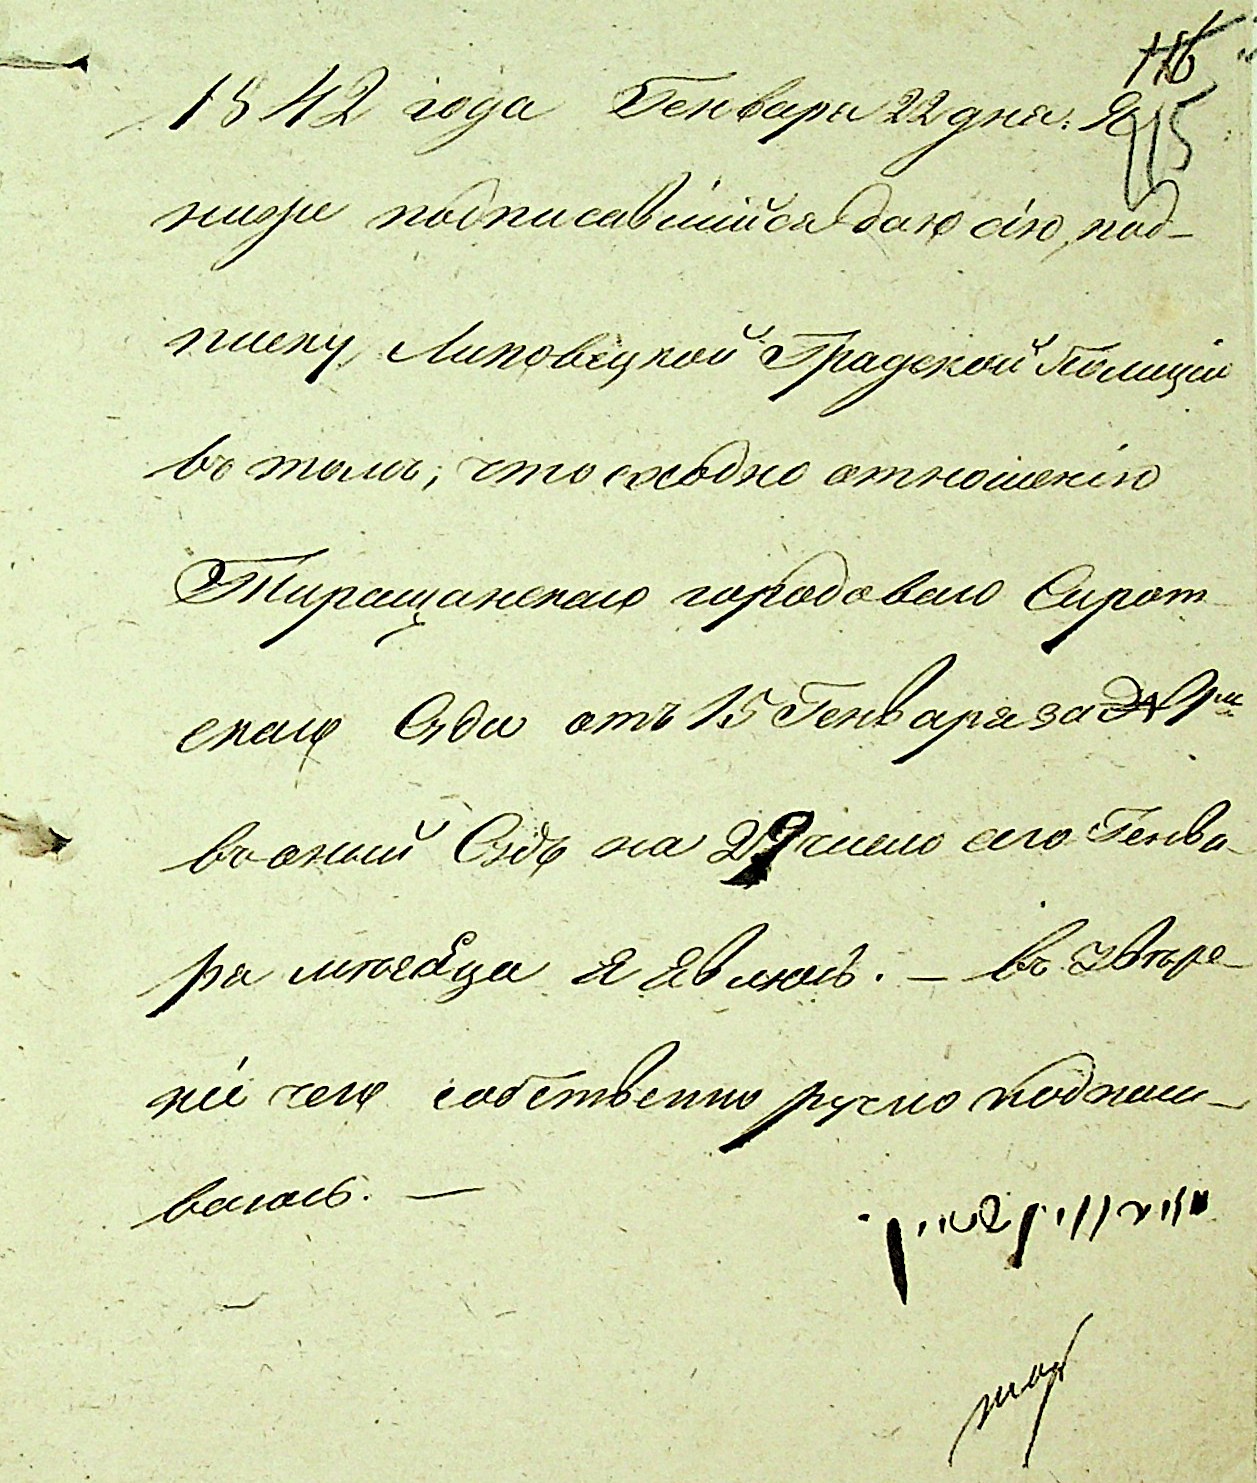 116
115
1842 года Генваря 22 дня. Я
ниже подписавшійся даю сію под-
писку Липовецкой Градской Полиціи
въ томъ, что сходно отношенію
Таращанскаго городоваго Сирот
скаго Суда отъ 15 Генваря за № 9
въ оный Судъ на 29 число сего Генва-
ря мѣсяца я явлюсь. — въ увѣре-
ніи чего собственно ручно подписы-
ваюсь. —